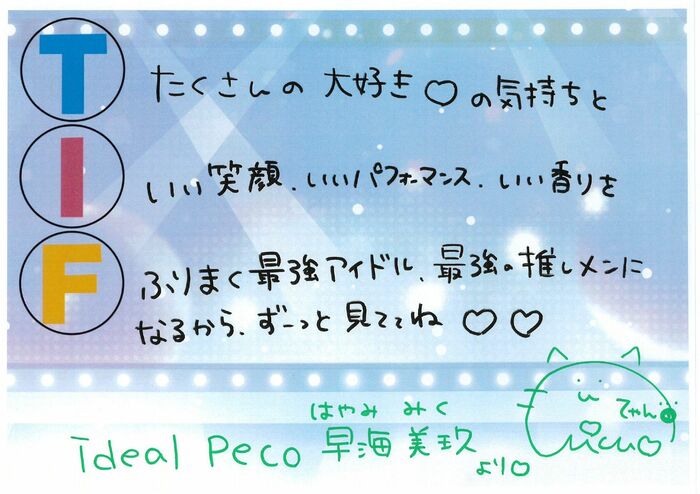 T
たくさんの 大好き♡の気持ちと
I
いい笑顔、いいパフォーマンス、いい香りを
F
ふりまく最強アイドル、最強の推しメンに
なるから、ずーっと見ててね ♡ ♡
はやみ みく
ideal peco 早海 美玖 より♡
てゃん